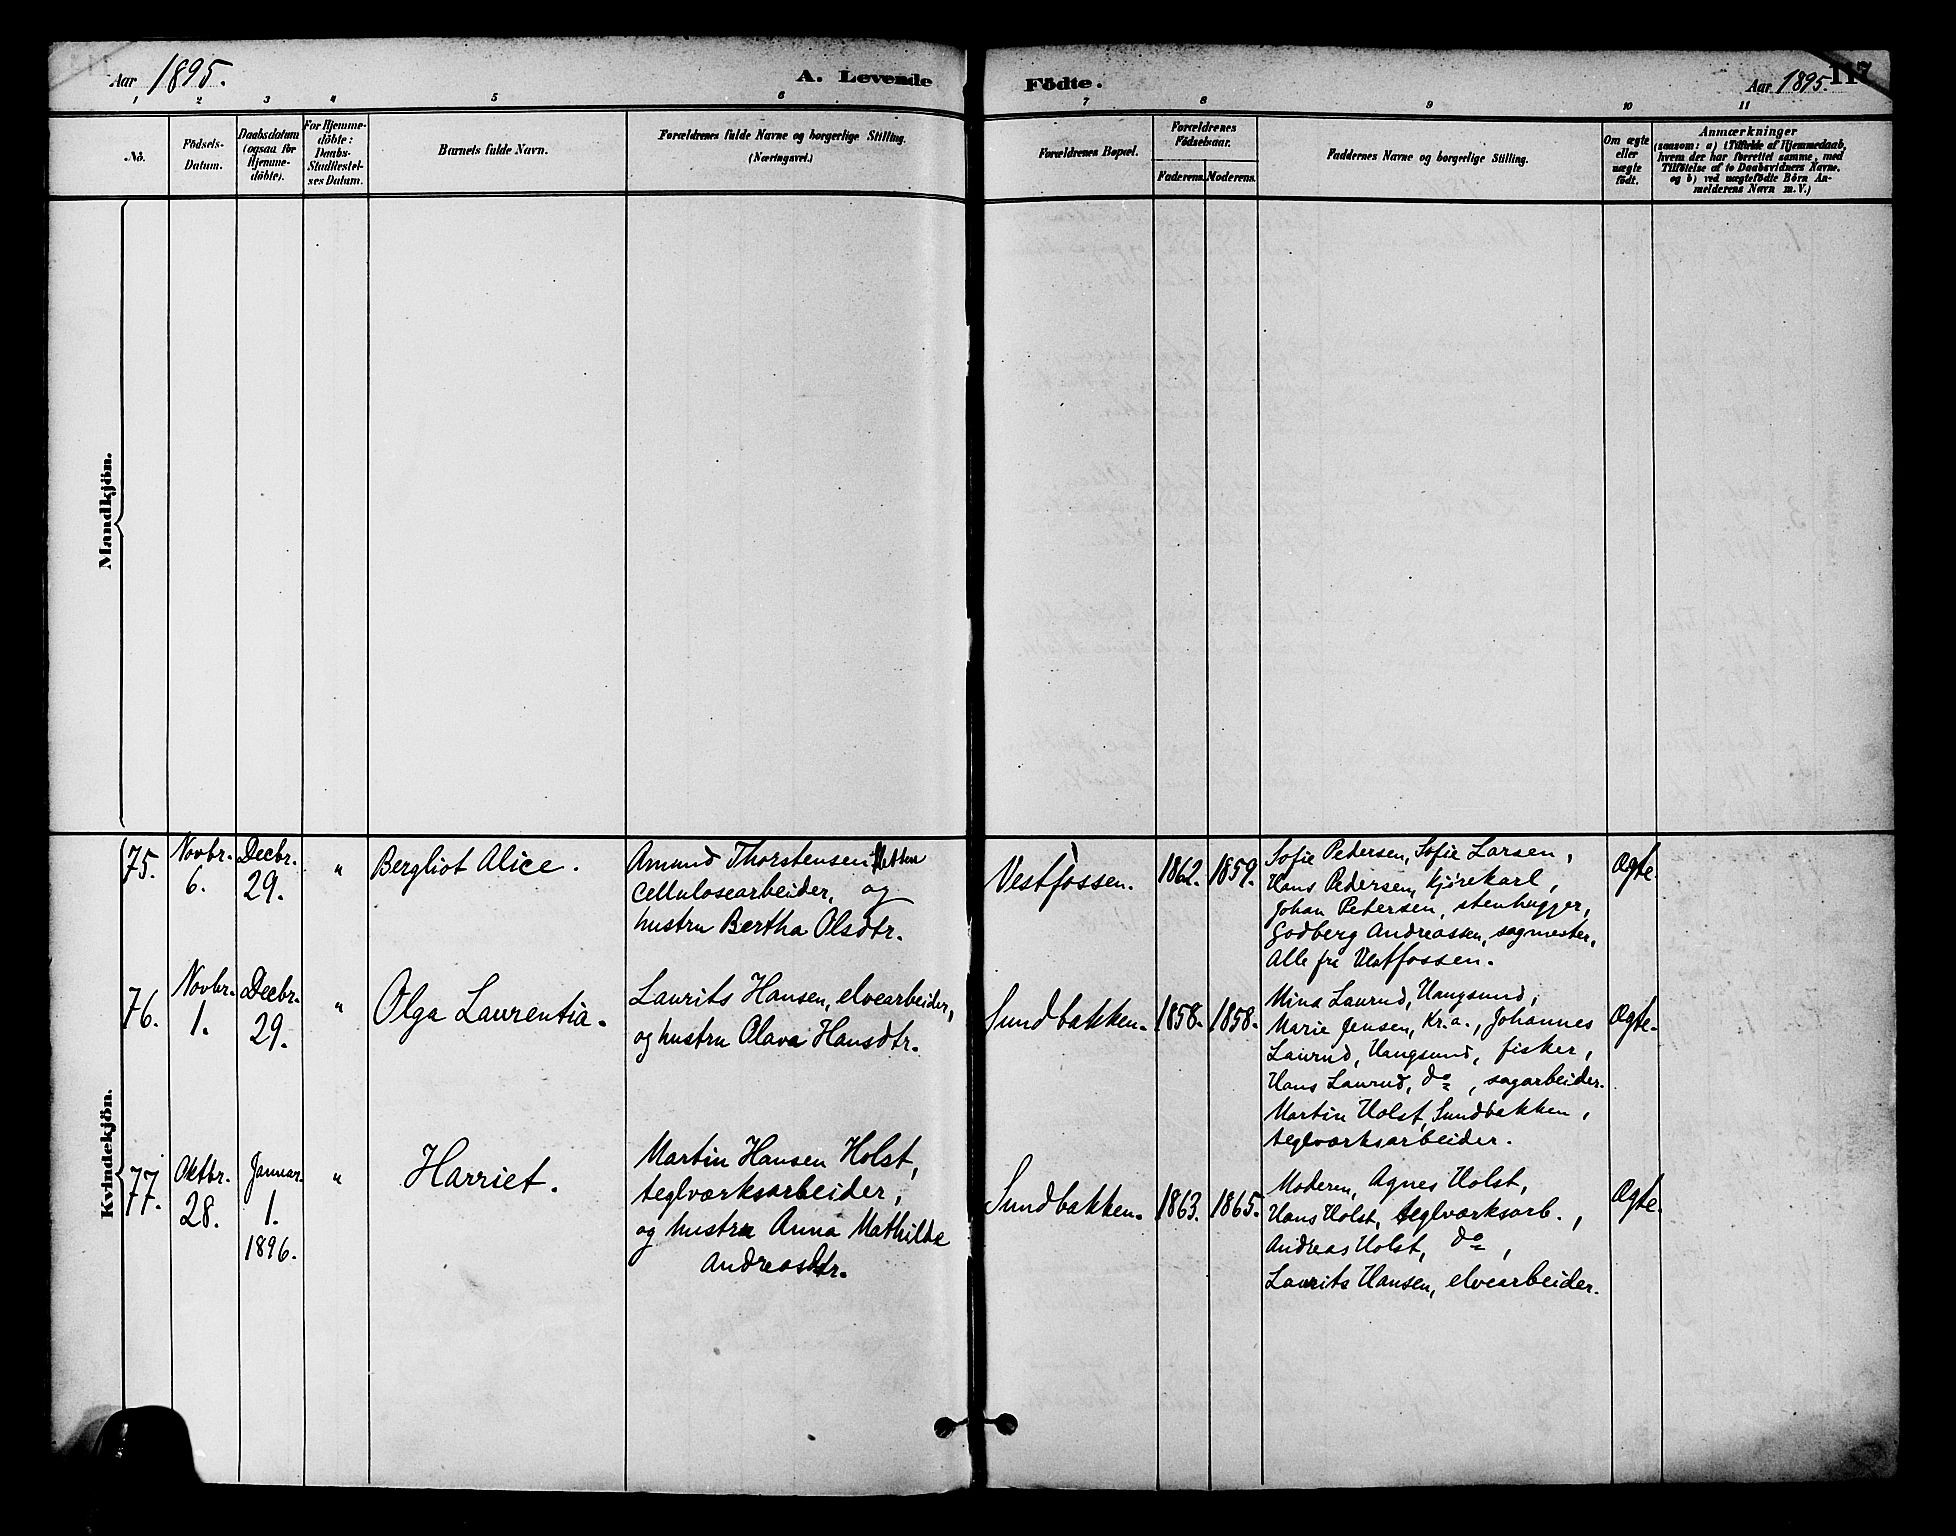 Aar 1895. A. Levende Födte. Aar 1895. 117
1 2 3 4 5 6 7 8 9 10 11
No.
Födsels-
Datum.
Daabsdatum
(ogsaa for
Hjemme-
döbte).
For Hjemme-
döbte:
Daabs-
Stadfæstel-
ses Datum.
Barnets fulde Navn.
Forældrenes fulde Navne og borgerlige Stilling.
(Næringsvei.)
Forældrenes Bopæl.
Forældrenes
Födselsaar.
Faderens. Moderens.
Faddernes Navne og borgerlige Stilling.
Om ægte
eller
uægte
födt.
Anmærkninger
(saasom: a) i Tilfælde af Hjemmedaab,
hvem der har forrettet samme, med
Tilföielse af to Daabsvidners Navne,
og b) ved uægtefödte Börn An-
melderens Navn m. V.)
Mandkjön.
Kvindekjön.
75.
Novbr.
6.
Decbr.
29.
"
Bergliot Alice.
Amund Thorstensen
Cellulosearbeider, og
hustru Bertha Olsdtr.
Vestfossen.
1862. 1859.
Sofie Pedersen, Sofie Larsen,
Hans Pedersen, Kjørekarl,
Johan Petersen, stenhugger,
Godberg Andreassen, sagmester,
Alle fra Vestfossen.
Ægte.
76.
Novbr.
1.
Decbr.
29.
"
Olga Laurentia.
Laurits Hansen, elvearbeider,
og hustru Olava Hansdtr.
Sundbakken.
1858. 1858.
Mina Laurud, Vangsund,
Marie Jensen, Kr.a., Johannes
Laurud, Vangsund, fisker,
Hans Laurud, do, sagarbeider.
Martin Holst, Sundbakken,
teglværksarbeider.
Ægte.
77.
Oktbr.
28.
Januar.
1.
1896.
"
Harriet.
Martin Hansen Holst,
teglværksarbeider,
og hustru Anna Mathilde
Andreasdtr.
Sundbakken.
1863. 1865.
Moderen, Agnes Holst,
Hans Holst, teglværksarb.,
Andreas Holst, do,
Laurits Hansen, elvearbeider.
Ægte.